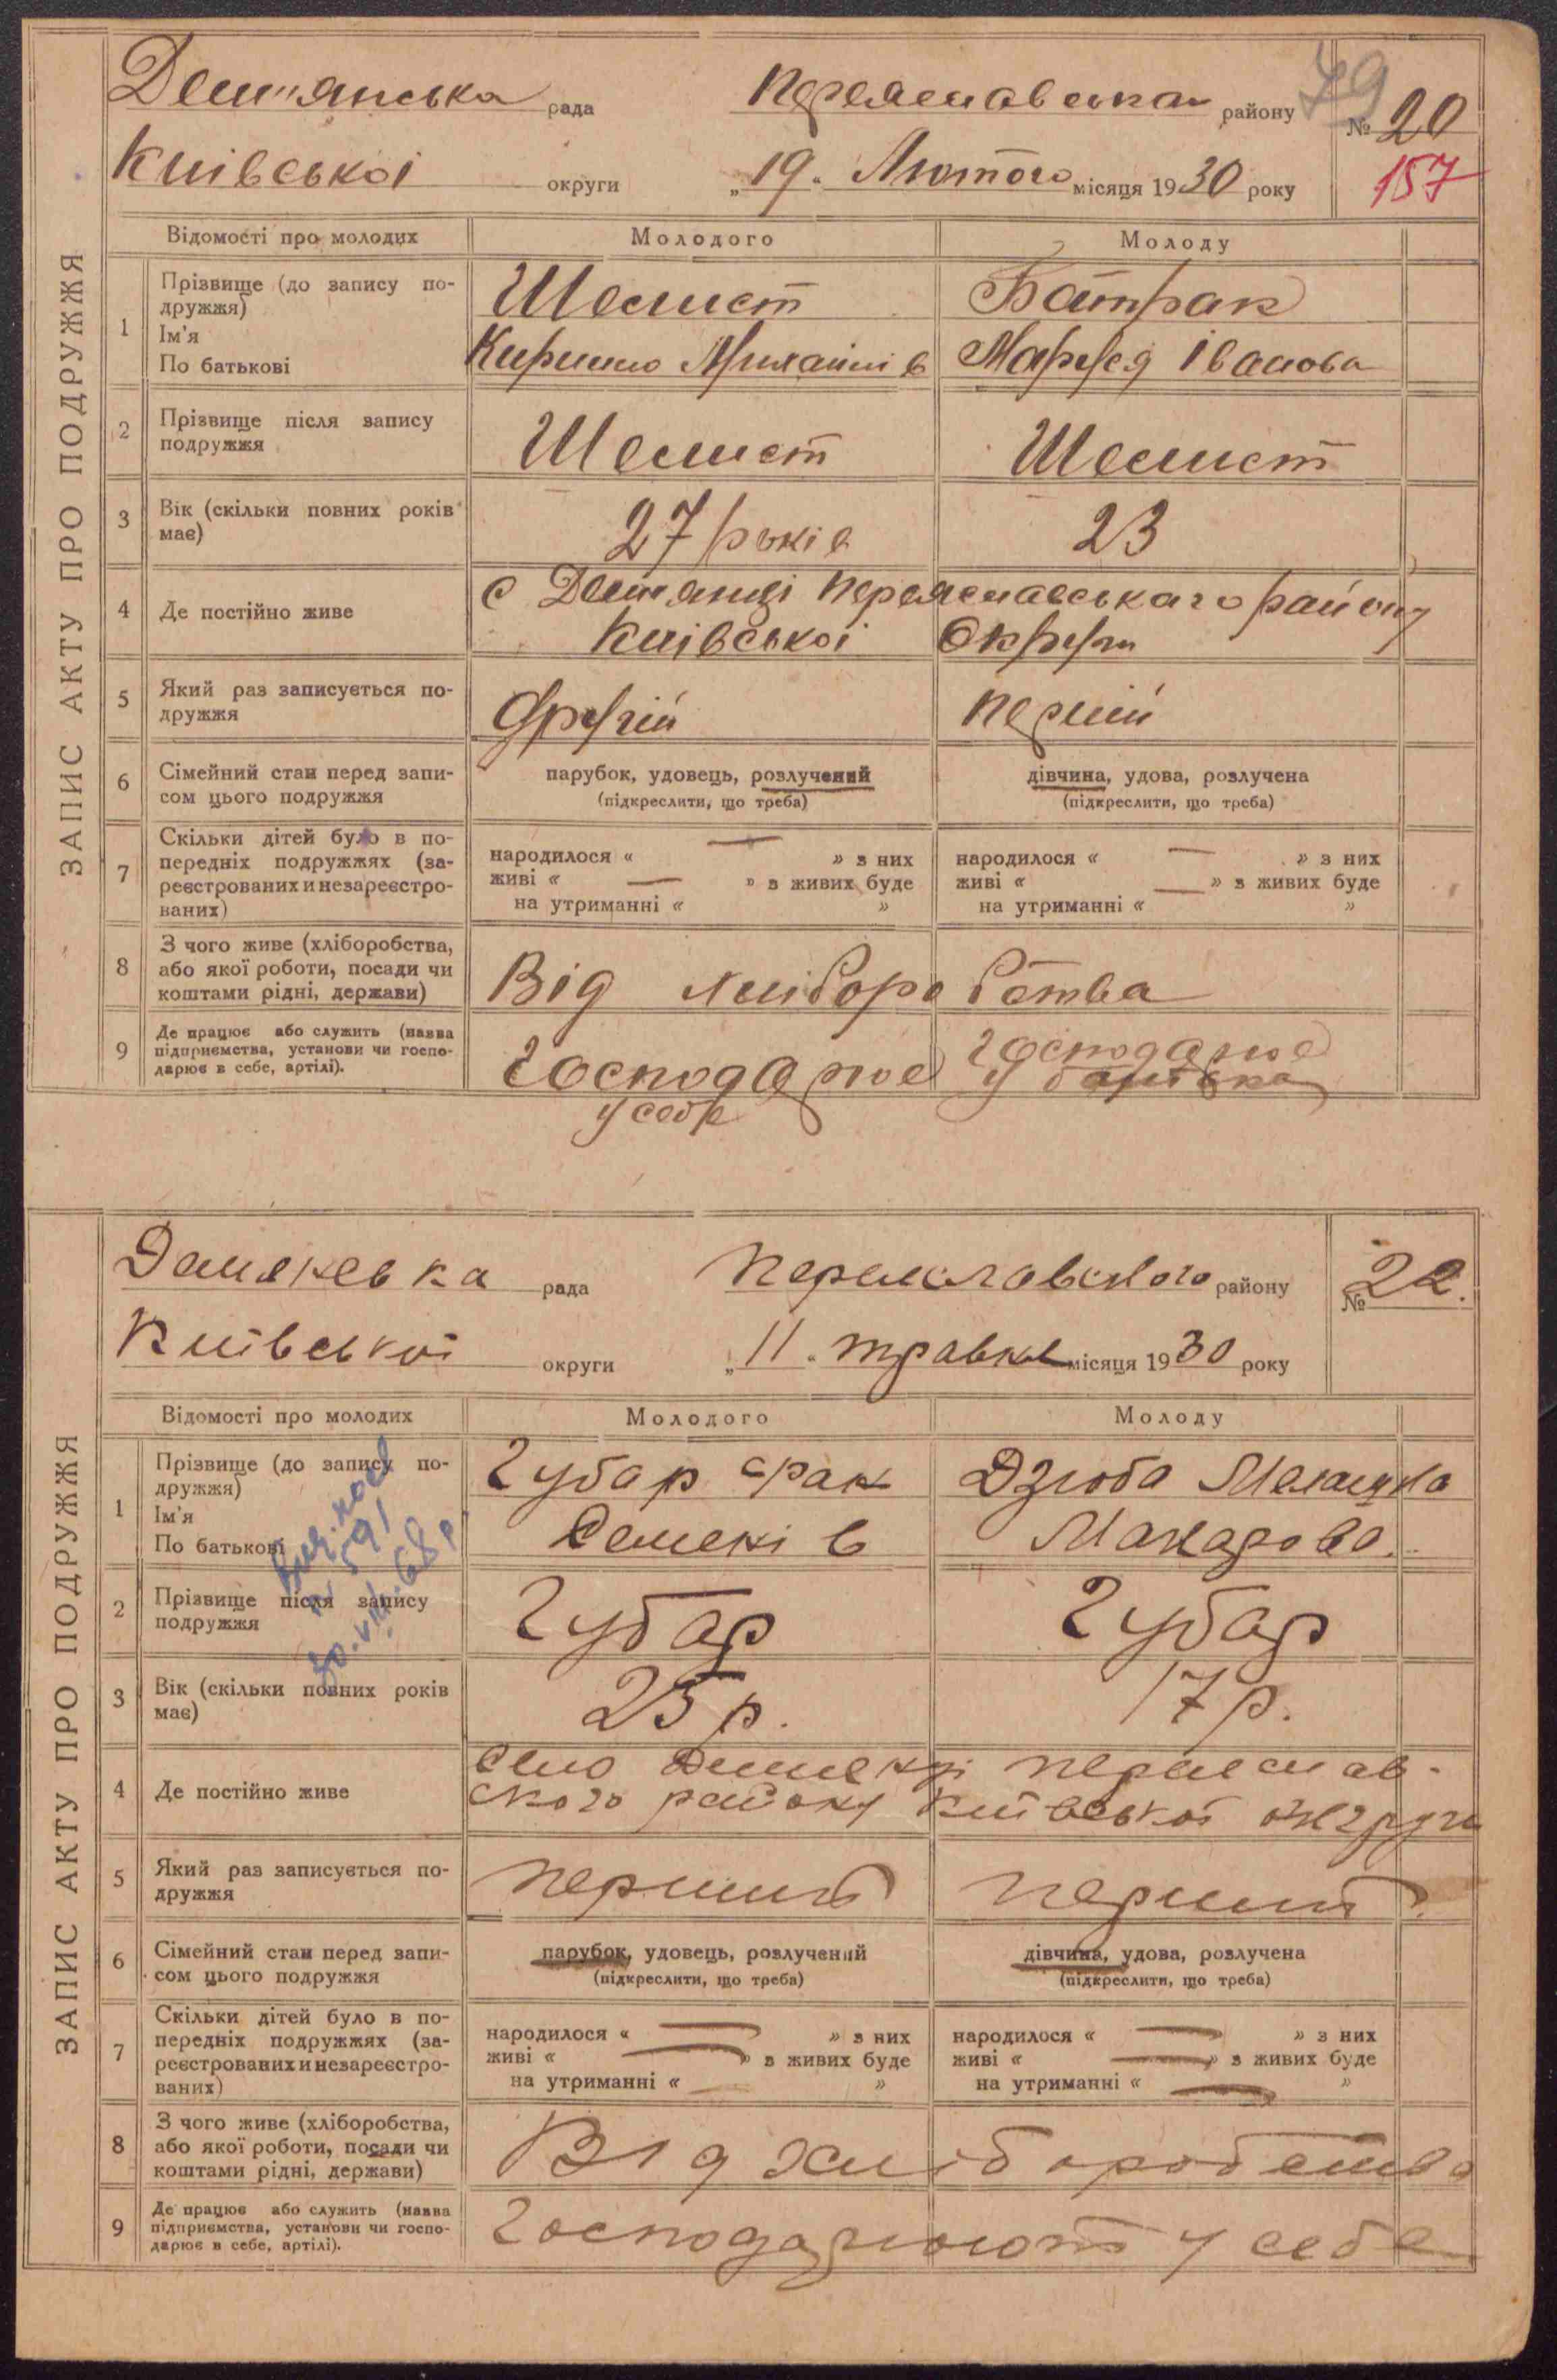 79
Дем'янська рада Переяславська району № 20
Київської округи „19“ Лютого місяця 1930 року 157
ЗАПИС АКТУ ПРО ПОДРУЖЖЯ
Відомості про молодих Молодого Молоду
1 Прізвище (до запису по-
дружжя) Шелист Батрак
Ім'я
По батькові Кирило Михайлів Марфея Іванова
2 Прізвище після запису
подружжя Шелист Шелист
3 Вік (скільки повних років
має) 27 років 23
4 Де постійно живе с Дем'янці Переяславського району
Київської Округи
5 Який раз записується по-
дружжя другій перший
6 Сімейний стан перед запи-
сом цього подружжя
парубок, удовець, розлучений дівчина, удова, розлучена
(підкреслити, що треба) (підкреслити, що треба)
7 Скільки дітей було в по-
передніх подружжях (за-
реєстрованих и незареєстро-
ваних)
народилося « — » з них народилося « — » з них
живі « — » з живих буде живі « — » з живих буде
на утриманні « » на утриманні « »
8 З чого живе (хліборобства,
або якої роботи, посади чи
коштами рідні, держави) Від хліборобства
9 Де працює або служить (назва
підприємства, установи чи госпо-
дарює в себе, артілі).
Господарює Господарює
у себе у батька
Переяславского району № 22.
Київської округи „11“ травня місяця 1930 року
рада
ЗАПИС АКТУ ПРО ПОДРУЖЖЯ
Відомості про молодих Молодого Молоду
1 Прізвище (до запису по-
дружжя) Губар Дзюба Меланка
Ім'я
По батькові Семенів Макарова
591
30.VII.68р
2 Прізвище після запису
подружжя Губар Губар
3 Вік (скільки повних років
має) 25 р. 17 р.
4 Де постійно живе село Демянці Переяслав-
ского району Київської округи
5 Який раз записується по-
дружжя перший перший
6 Сімейний стан перед запи-
сом цього подружжя
парубок, удовець, розлучений дівчина, удова, розлучена
(підкреслити, що треба) (підкреслити, що треба)
7 Скільки дітей було в по-
передніх подружжях (за-
реєстрованих и незареєстро-
ваних)
народилося « — » з них народилося « — » з них
живі « — » з живих буде живі « — » з живих буде
на утриманні « — » на утриманні « — »
8 З чого живе (хліборобства,
або якої роботи, посади чи
коштами рідні, держави) Від хліборобства
9 Де працює або служить (назва
підприємства, установи чи госпо-
дарює в себе, артілі). Господарюют у себе